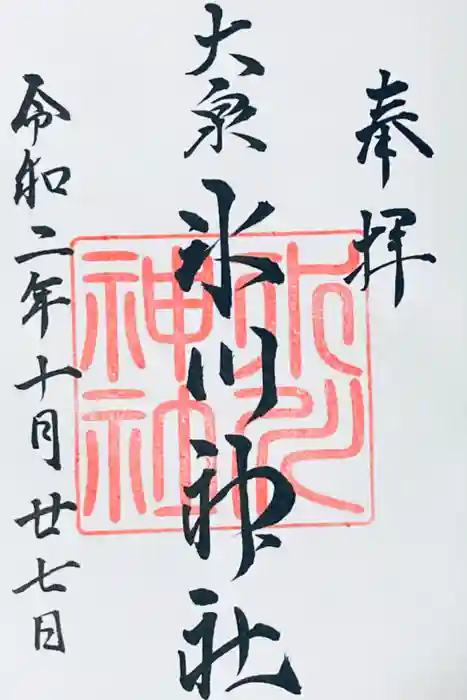 奉拝
大泉
氷川神社
令和二年十月廿七日
氷川
神社